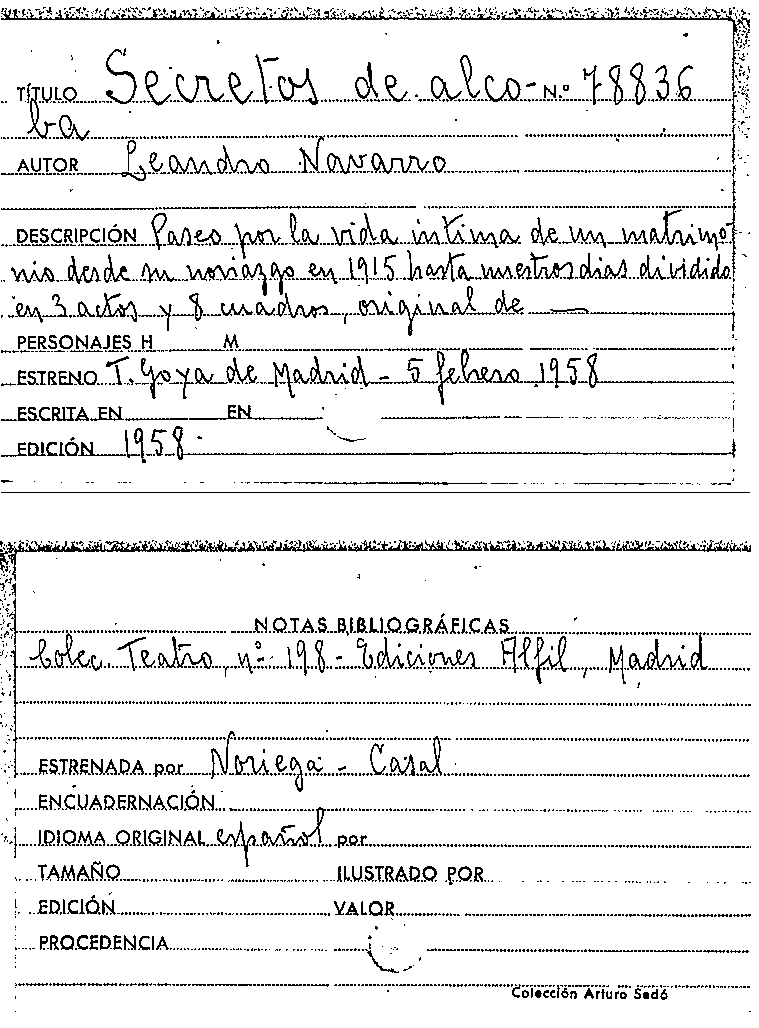 TÍTULO Secretos de alco- N.º 78836
ba
AUTOR Leandro Navarro
DESCRIPCIÓN Paseo por la vida íntima de un matrimo
nio desde su noviazgo en 1915 hasta nuestros dias dividido
en 3 actos y 8 cuadros, original de —
PERSONAJES H M
ESTRENO T. Goya de Madrid - 5 febrero 1958
ESCRITA EN EN
EDICIÓN 1958
NOTAS BIBLIOGRÁFICAS
Colec. Teatro, nº 198 - Ediciones Alfil, Madrid
ESTRENADA por Noriega - Casal
ENCUADERNACIÓN
IDIOMA ORIGINAL español por
TAMAÑO ILUSTRADO POR
EDICIÓN VALOR
PROCEDENCIA
Colección Arturo Sedó